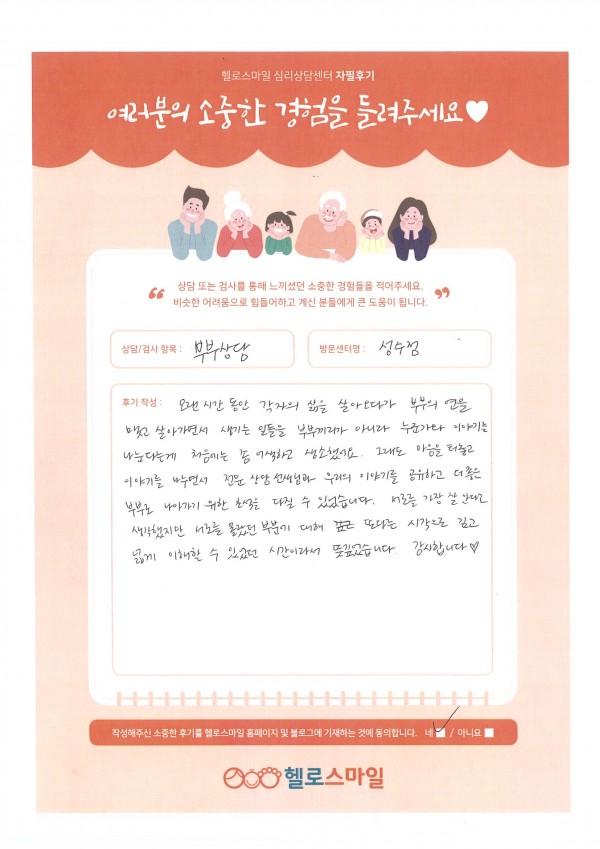 헬로스마일 심리상담센터 자필후기
여러분의 소중한 경험을 들려주세요♥
상담 또는 검사를 통해 느끼셨던 소중한 경험들을 적어주세요.
비슷한 어려움으로 힘들어하고 계신 분들에게 큰 도움이 됩니다.
상담/검사 항목 : 부부상담
방문센터명 : 성수점
후기 작성 : 오랜 시간 동안 각자의 삶을 살아오다가 부부의 연을
맺고 살아가면서 생기는 일들을 부부끼리가 아니라 누군가와 이야기를
나눈다는게 처음에는 좀 어색하고 생소했어요. 그래도 마음을 터놓고
이야기를 나누면서 전문 상담 선생님과 우리의 이야기를 공유하고 더 좋은
부부로 나아가기 위한 초석을 다질 수 있었습니다. 서로를 가장 잘 안다고
생각했지만 서로를 몰랐던 부분에 대해 또다른 시각으로 깊고
넓게 이해할 수 있었던 시간이라서 뜻깊었습니다. 감사합니다♡
작성해주신 소중한 후기를 헬로스마일 홈페이지 및 블로그에 기재하는 것에 동의합니다. 네 / 아니요
헬로스마일